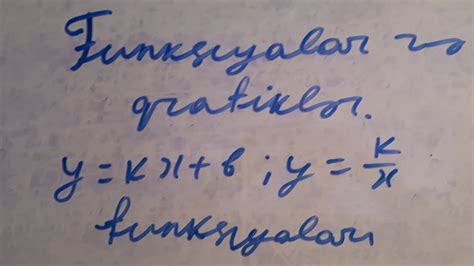 Funksiyalar və
qrafiklər.
y = kx + b ; y = k/x
funksiyaları